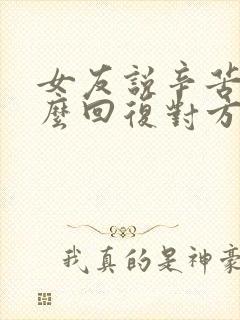 女友說辛苦
麼回復對方
我真的是神豪